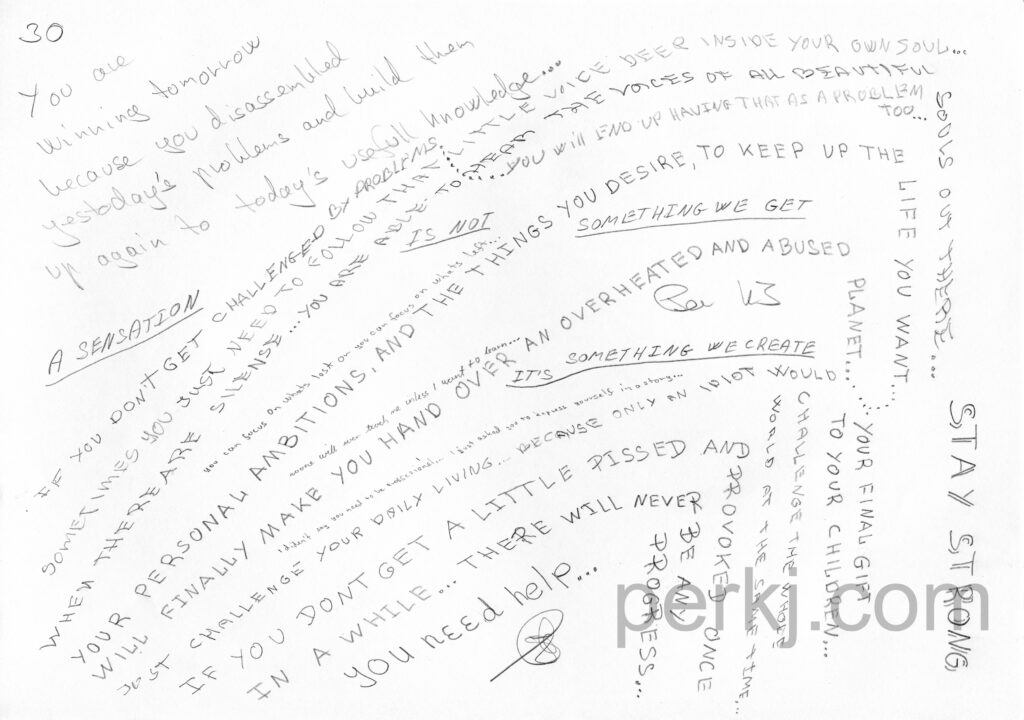 30
You are
winning tomorrow
because you disassembled
yestoday's problems and build them
up again to today's usefull knowledge...
IF YOU DON'T GET CHALLENGED BY PROBLEMS...
...YOU WILL END UP HAVING THAT AS A PROBLEM
TOO...
SOMETIMES YOU JUST NEED TO FOLLOW THAT LITTLE VOICE DEEP INSIDE YOUR OWN SOUL...
WHEN THERE ARE SILENSE...YOU ARE ABLE TO HEAR THE VOICES OF ALL BEAUTIFUL
SOULS OUT THERE...
A SENSATION
IS NOT
SOMETHING WE GET
IT'S SOMETHING WE CREATE
you can focus on whats lost or you can focus on whats left...
YOUR PERSONAL AMBITIONS, AND THE THINGS YOU DESIRE, TO KEEP UP THE
LIFE YOU WANT...
noone will ever teach me unless I want to learn...
WILL FINALLY MAKE YOU HAND OVER AN OVERHEATED AND ABUSED
PLANET...
...YOUR FINAL GIFT
TO YOUR CHILDREN...
I didn't say you need to be successful... I just asked you to express yourself in a story...
JUST CHALLENGE YOUR DAILY LIVING... BECAUSE ONLY AN IDIOT WOULD
CHALLENGE THE WHOLE
WORLD AT THE SAME TIME...
IF YOU DONT GET A LITTLE PISSED AND
PROVOKED ONCE
IN A WHILE... THERE WILL NEVER
BE ANY
PROGRESS...
YOU NEED help...
STAY STRONG
perkj.com